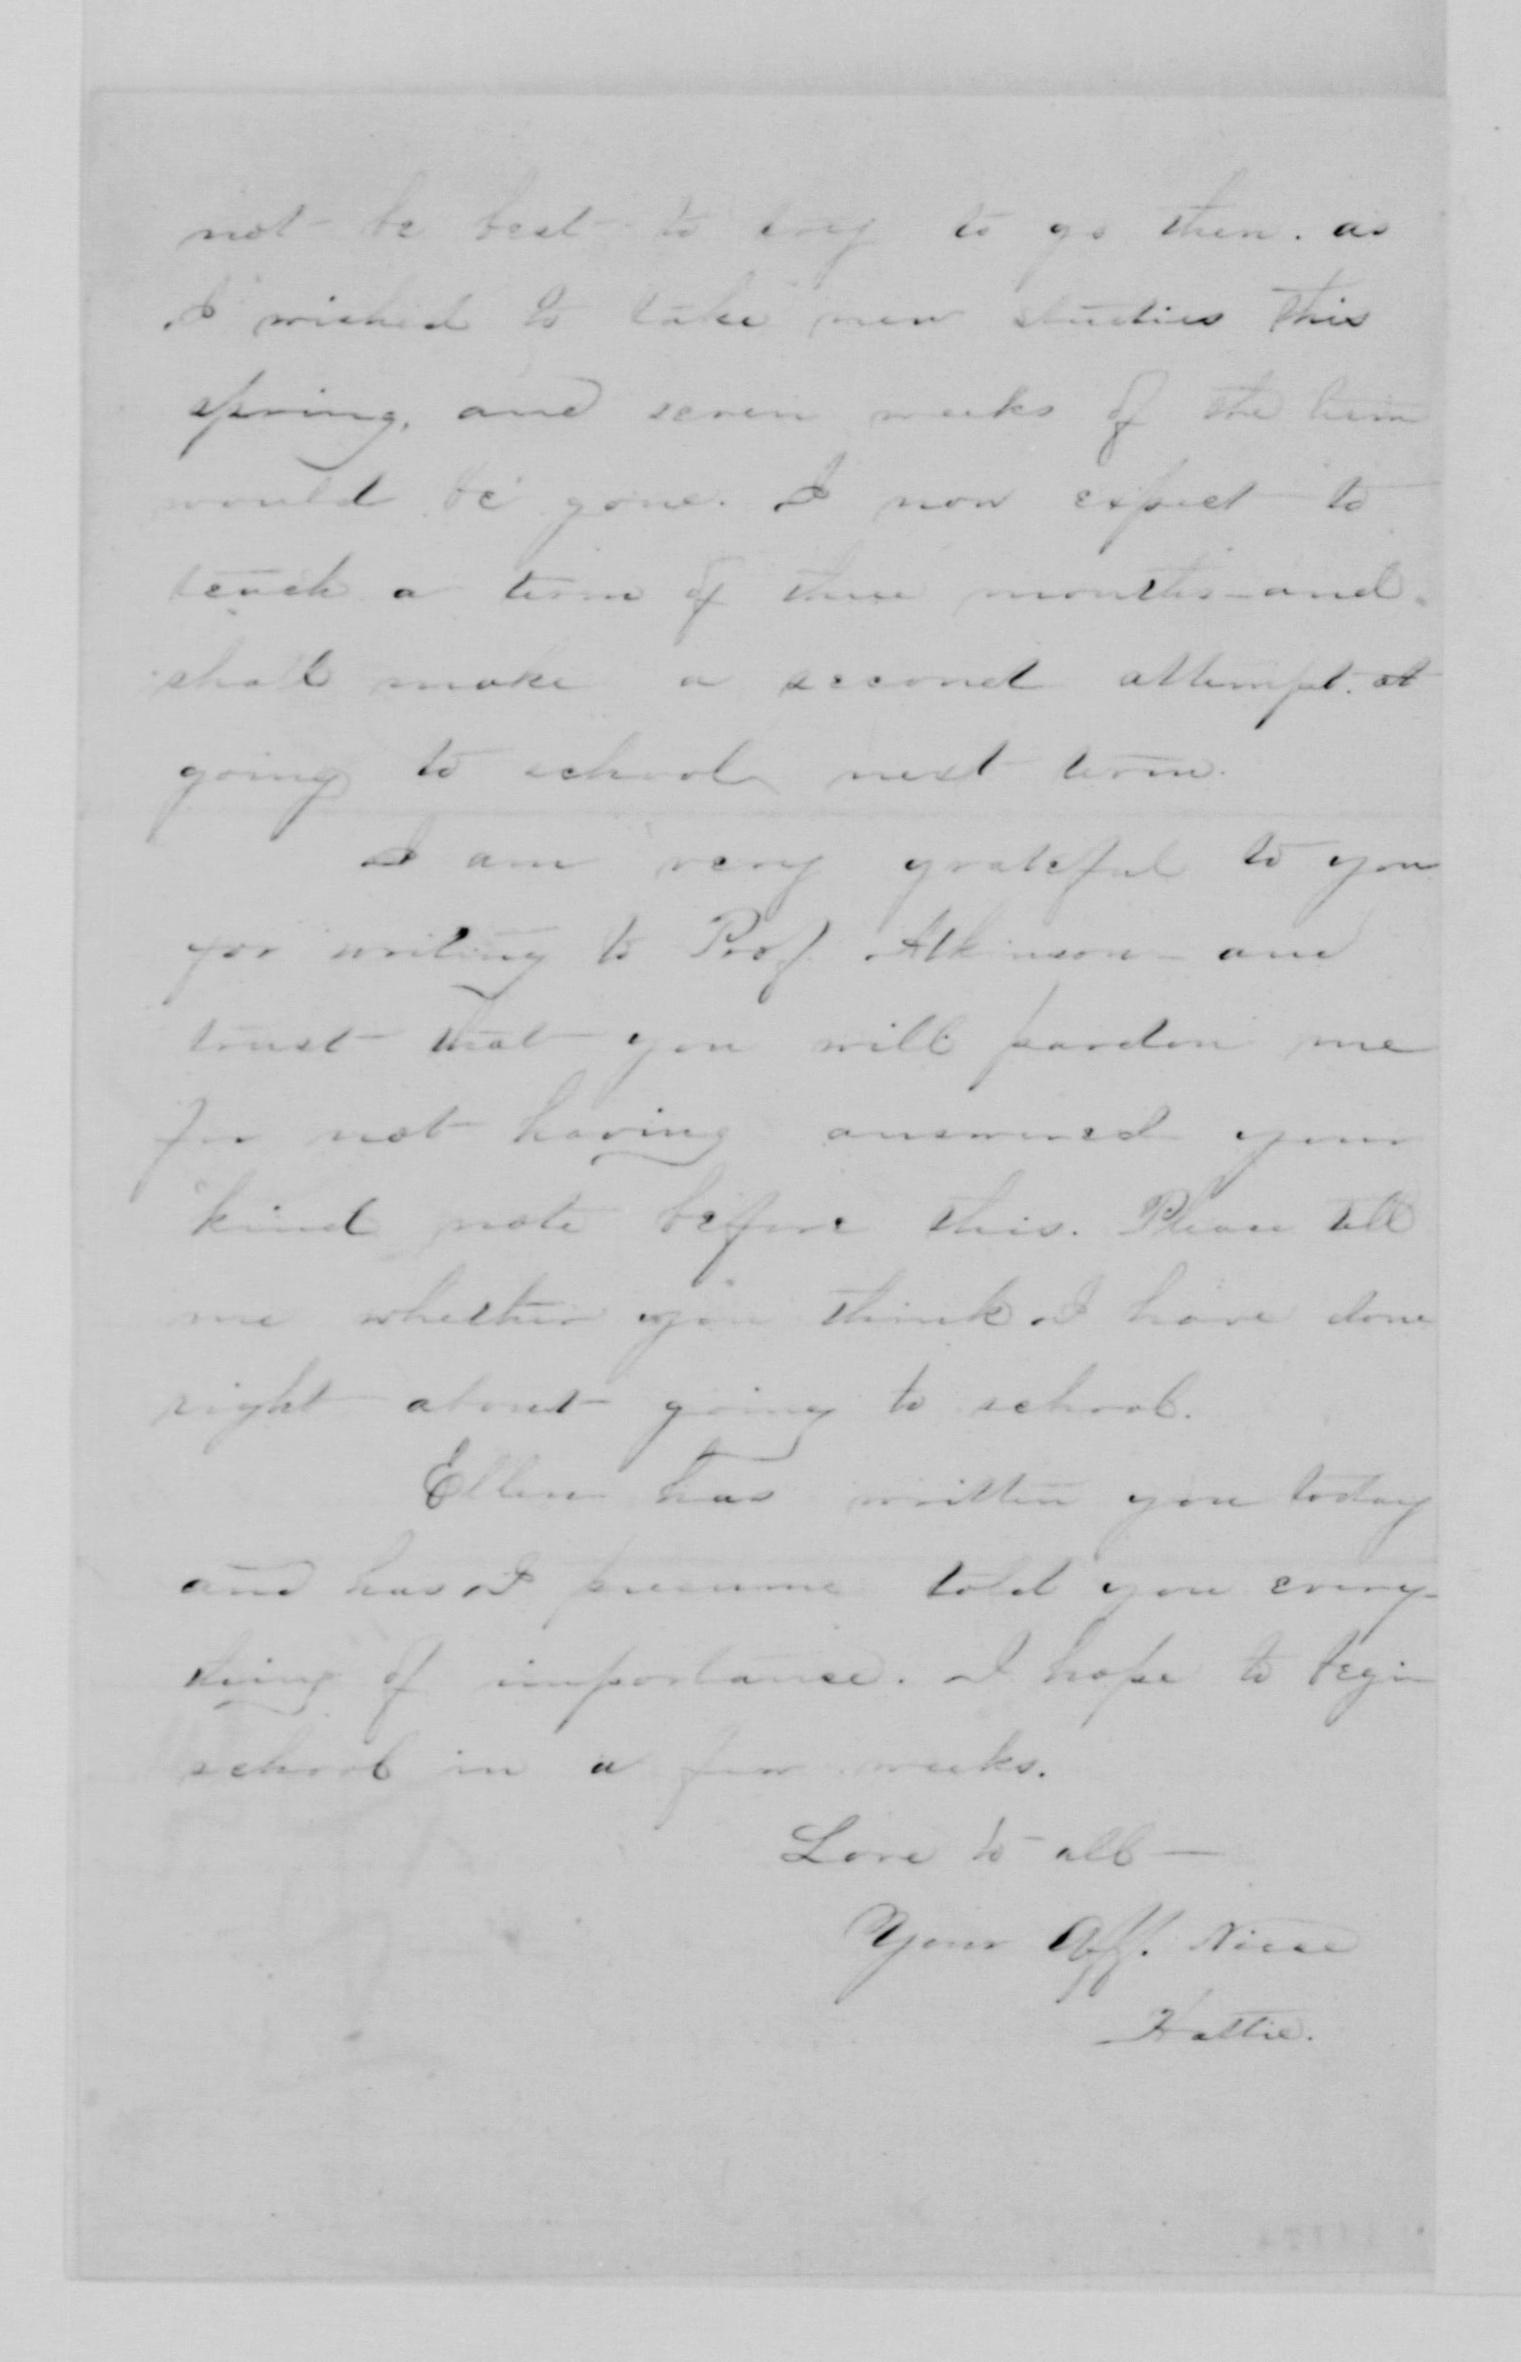 not be best to try to go then. as
I wished to take new studies this
spring, and seven weeks of the term
would be gone. I now expect to
teach a term of three months - and
shall make a second attempt at
going to school next term.
I am very grateful to you
for writing to Prof. Atkinson - and
trust that you will pardon me
for not having answered your
kind note before this. Please tell
me whether you think I have done
right about going to school.
Ellen has written you today
and has I presume told you every-
thing of importance. I hope to begin
school in a few weeks.
Love to all —
Your Aff. Niece
Hattie.